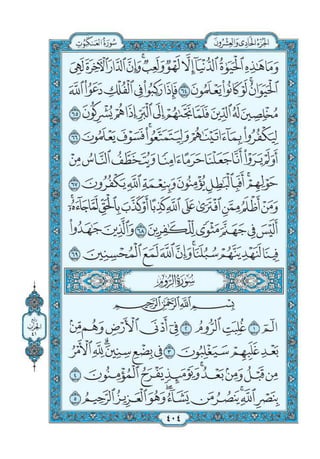 الجزء الحادي والعشرون
سورة العنكبوت
وَمَا هَٰذِهِ ٱلْحَيَوٰةُ ٱلدُّنْيَآ إِلَّا لَهْوٌ وَلَعِبٌ ۚ وَإِنَّ ٱلدَّارَ ٱلْءَاخِرَةَ لَهِىَ
ٱلْحَيَوَانُ ۚ لَوْ كَانُوا۟ يَعْلَمُونَ ٦٤ فَإِذَا رَكِبُوا۟ فِى ٱلْفُلْكِ دَعَوُا۟ ٱللَّهَ
مُخْلِصِينَ لَهُ ٱلدِّينَ فَلَمَّا نَجَّىٰهُمْ إِلَى ٱلْبَرِّ إِذَا هُمْ يُشْرِكُونَ ٦٥
لِيَكْفُرُوا۟ بِمَآ ءَاتَيْنَٰهُمْ وَلِيَتَمَتَّعُوا۟ ۖ فَسَوْفَ يَعْلَمُونَ ٦٦
أَوَلَمْ يَرَوْا۟ أَنَّا جَعَلْنَا حَرَمًا ءَامِنًا وَيُتَخَطَّفُ ٱلنَّاسُ مِنْ
حَوْلِهِمْ ۚ أَفَبِٱلْبَٰطِلِ يُؤْمِنُونَ وَبِنِعْمَةِ ٱللَّهِ يَكْفُرُونَ ٦٧
وَمَنْ أَظْلَمُ مِمَّنِ ٱفْتَرَىٰ عَلَى ٱللَّهِ كَذِبًا أَوْ كَذَّبَ بِٱلْحَقِّ لَمَّا جَآءَهُۥٓ ۚ
أَلَيْسَ فِى جَهَنَّمَ مَثْوًى لِّلْكَٰفِرِينَ ٦٨ وَٱلَّذِينَ جَٰهَدُوا۟
فِينَا لَنَهْدِيَنَّهُمْ سُبُلَنَا ۚ وَإِنَّ ٱللَّهَ لَمَعَ ٱلْمُحْسِنِينَ ٦٩
سورة الروم
بِسْمِ ٱللَّهِ ٱلرَّحْمَٰنِ ٱلرَّحِيمِ
الٓمٓ ١ غُلِبَتِ ٱلرُّومُ ٢ فِىٓ أَدْنَى ٱلْأَرْضِ وَهُم مِّنۢ
بَعْدِ غَلَبِهِمْ سَيَغْلِبُونَ ٣ فِى بِضْعِ سِنِينَ ۗ لِلَّهِ ٱلْأَمْرُ
مِن قَبْلُ وَمِنۢ بَعْدُ ۚ وَيَوْمَئِذٍ يَفْرَحُ ٱلْمُؤْمِنُونَ ٤
بِنَصْرِ ٱللَّهِ ۚ يَنصُرُ مَن يَشَآءُ ۖ وَهُوَ ٱلْعَزِيزُ ٱلرَّحِيمُ ٥
٤٠٤
الحزب
٤١